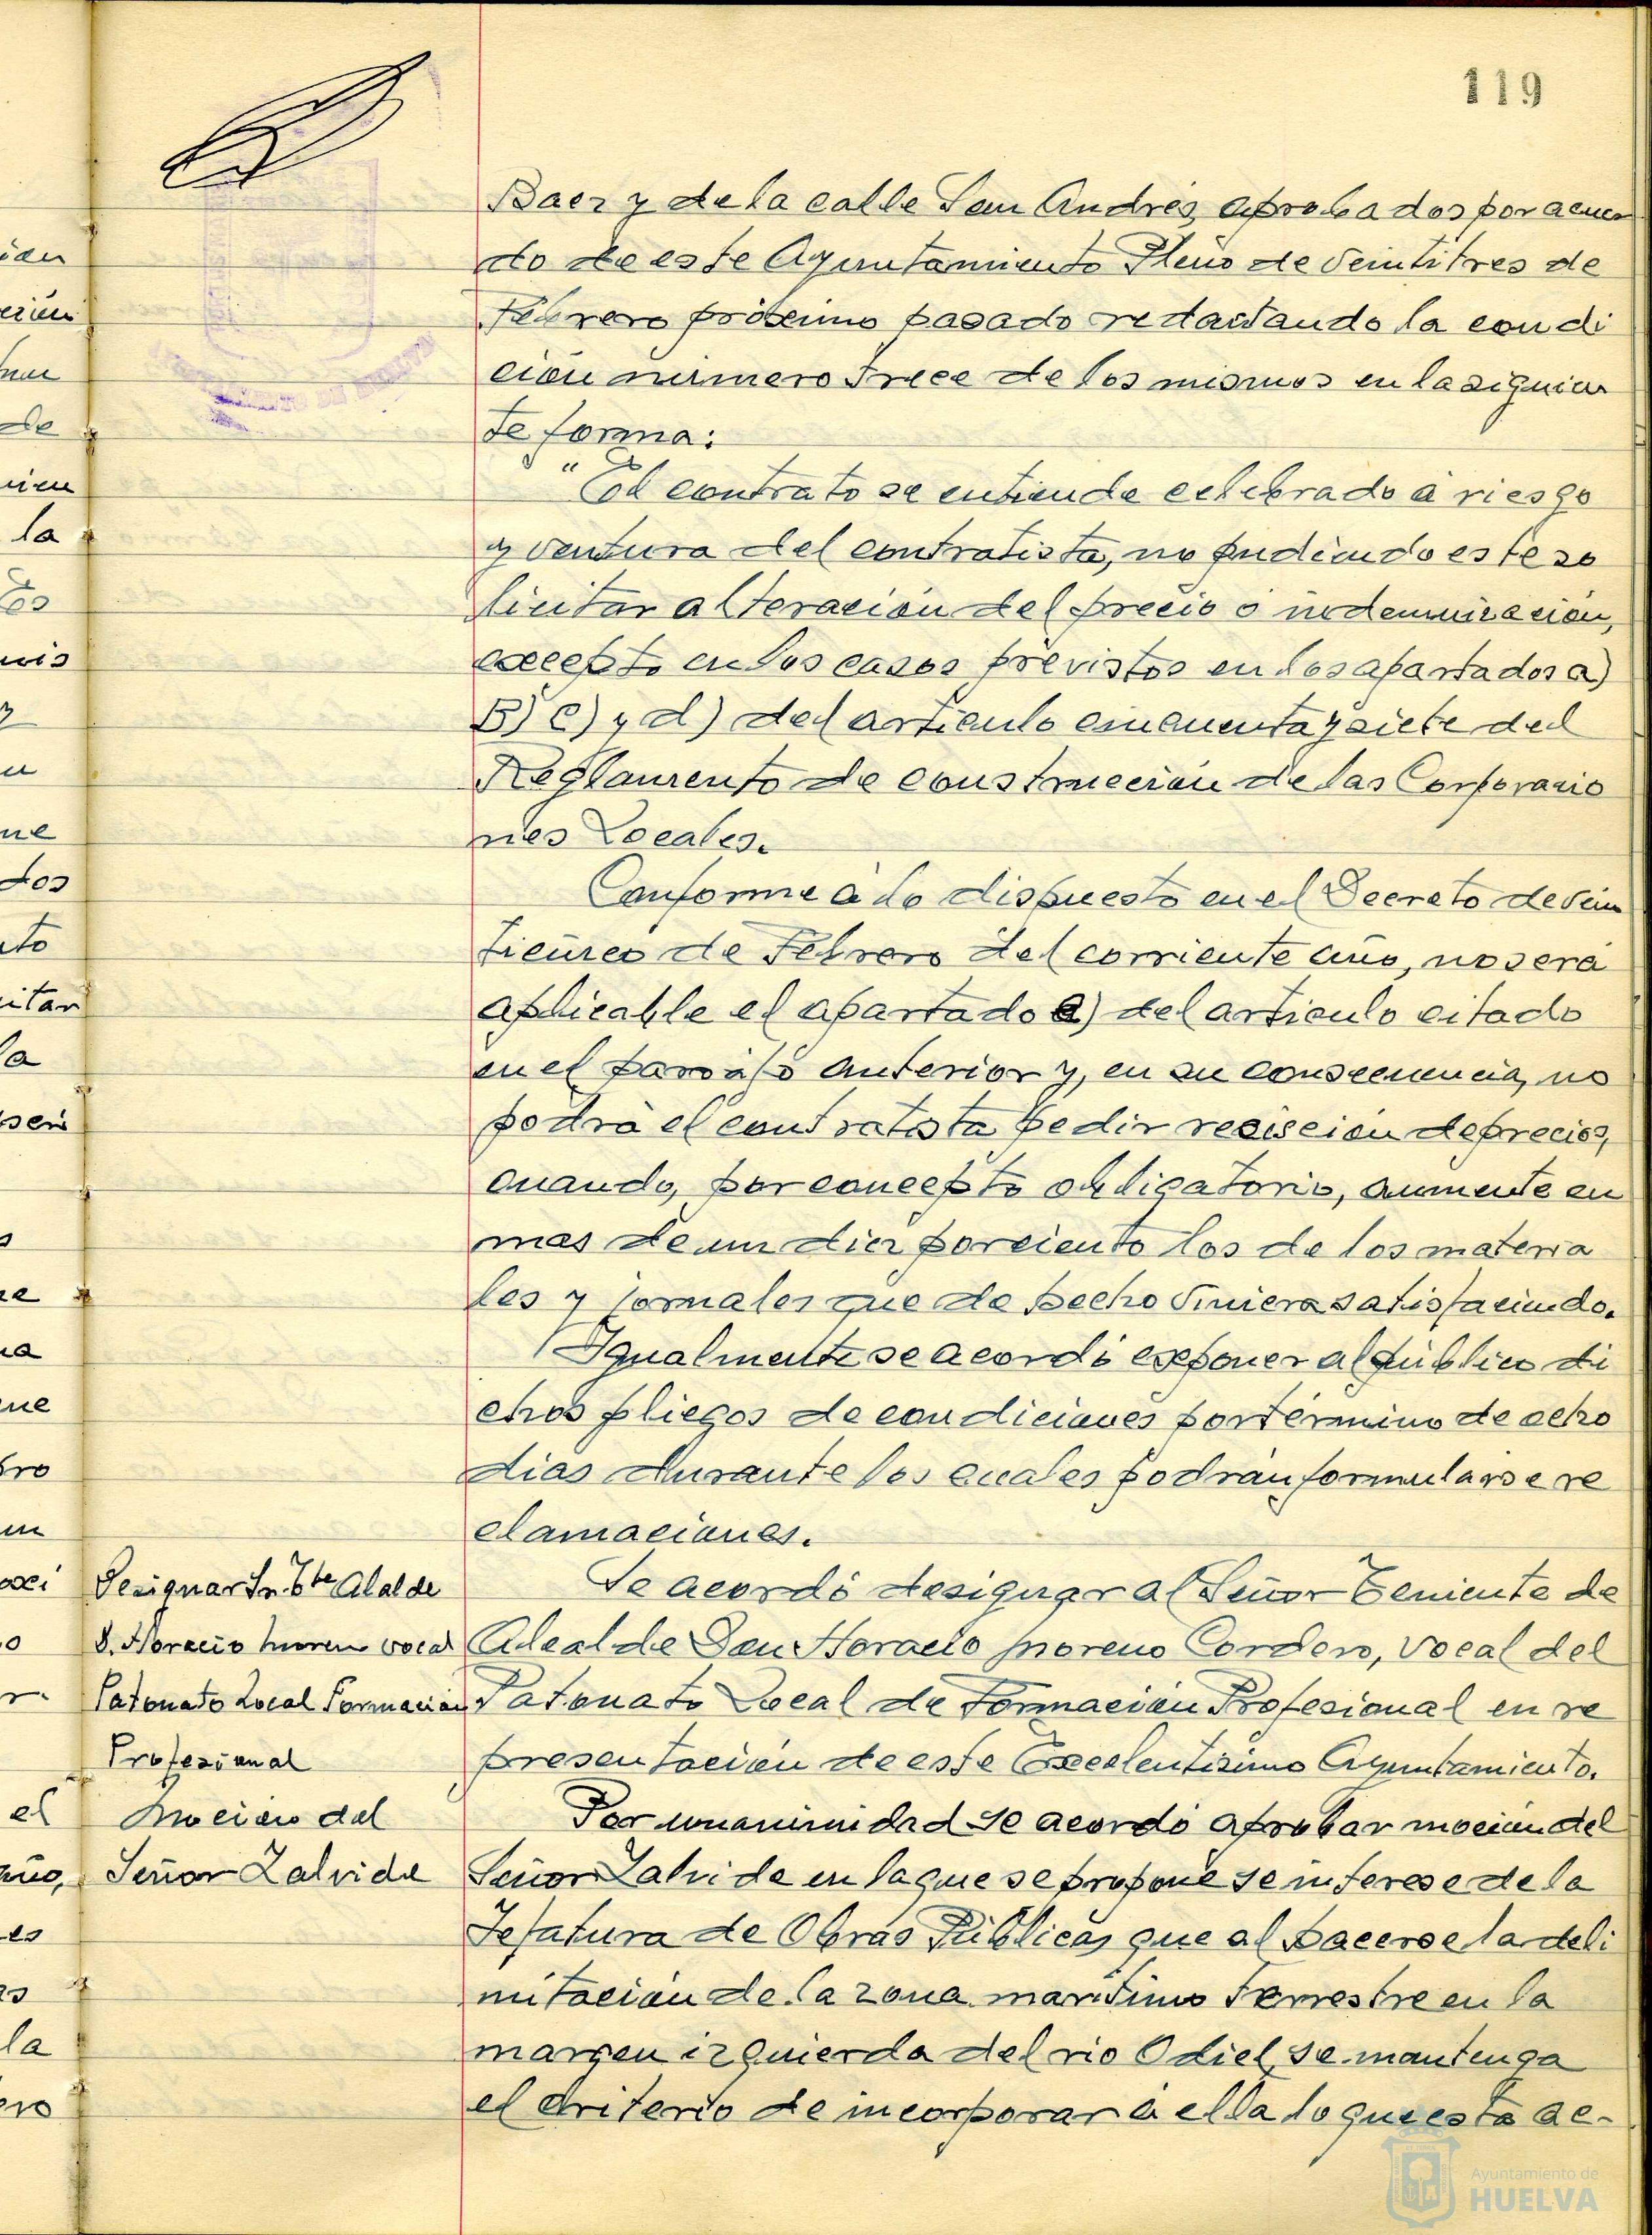 119
Baez y de la calle San Andrés, aprobados por acuer
do de este Ayuntamiento Pleno de veintitres de
Febrero próximo pasado redactando la condi
ción número trece de los mismos en la siguien
te forma:
"El contrato se entiende celebrado a riesgo
y ventura del contratista, no pudiendo este so
licitar alteración del precio o indemnización,
excepto en los casos previstos en los apartados a)
B) c) y d) del articulo cincuenta y siete del
Reglamento de construcción de las Corporacio
nes Locales.
Conforme a lo dispuesto en el Decreto de vein
ticinco de Febrero del corriente año, no será
aplicable el apartado a) del articulo citado
en el parrafo anterior y, en su consecuencia, no
podrá el contratista pedir revisión de precios,
cuando, por concepto obligatorio, aumente en
mas de un diez por ciento los de los materia
les y jornales que de hecho viniera satisfaciendo.
Igualmente se acordó exponer al público di
chos pliegos de condiciones por término de ocho
dias durante los cuales podrán formularse re
clamaciones.
Designar Sr. Tte Alalde
D. Horacio Moreno vocal
Patonato Local Formacion
Profesional
Se acordó designar al Señor Teniente de
Alcalde Don Horacio Moreno Cordero, Vocal del
Patonato Local de Formación Profesional en re
presentación de este Excelentisimo Ayuntamiento.
Mocion del
Señor Zalvide
Por unanimidad se acordó aprobar moción del
Señor Zalvide en la que se propone se interese de la
Jefatura de Obras Públicas que al hacerse la deli
mitación de la zona maritimo terrestre en la
margen izquierda del rio Odiel, se mantenga
el criterio de incorporar a ella lo que esta ac-
Ayuntamiento de
HUELVA